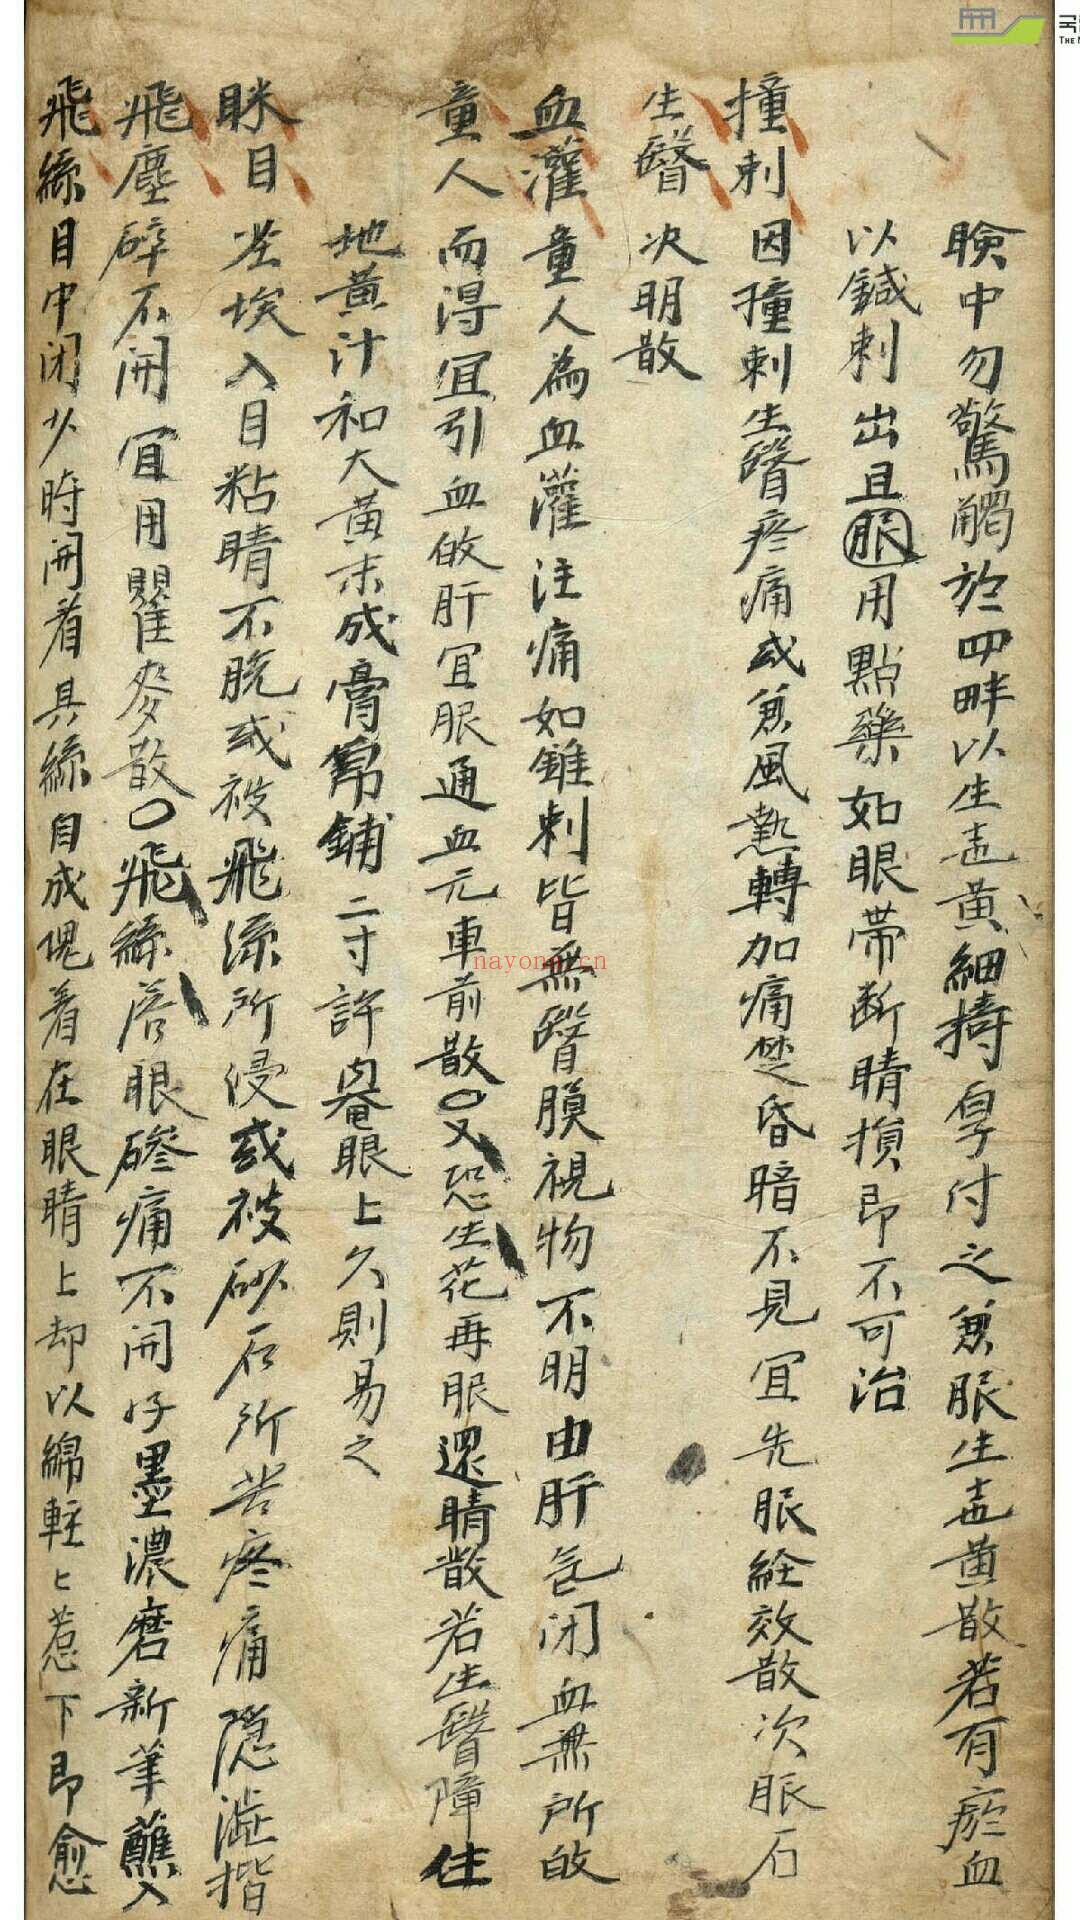 瞼中勿驚觸於四畔以生地黃細搗厚付之兼服生地黃散若有瘀血
以鍼刺出且服用點藥如眼帶斷睛損即不可治
撞刺因撞刺生瞖疼痛或兼風熱轉加痛楚昏暗不見宜先服經效散次服石
生瞖决明散
血灌童人為血灌注痛如錐刺皆無瞖膜視物不明由肝气闭血無所故
童人而得宜引血皈肝宜服通血元車前散〇又恐生花再服還睛散若生瞖障住
地黃汁和大黃末成膏帛鋪二寸許罨眼上久則易之
眯目塵埃入目粘睛不脫或被飛絲所侵或被砂石所苦疼痛隐澁揩
飛塵碎不開宜用瞿麥散〇飛絲落眼磣痛不開好墨濃磨新筆蘸入
飛絲目中闭少時開看其絲自成塊着在眼睛上却以綿輕〻惹下即愈
nayona.cn
국
THE N